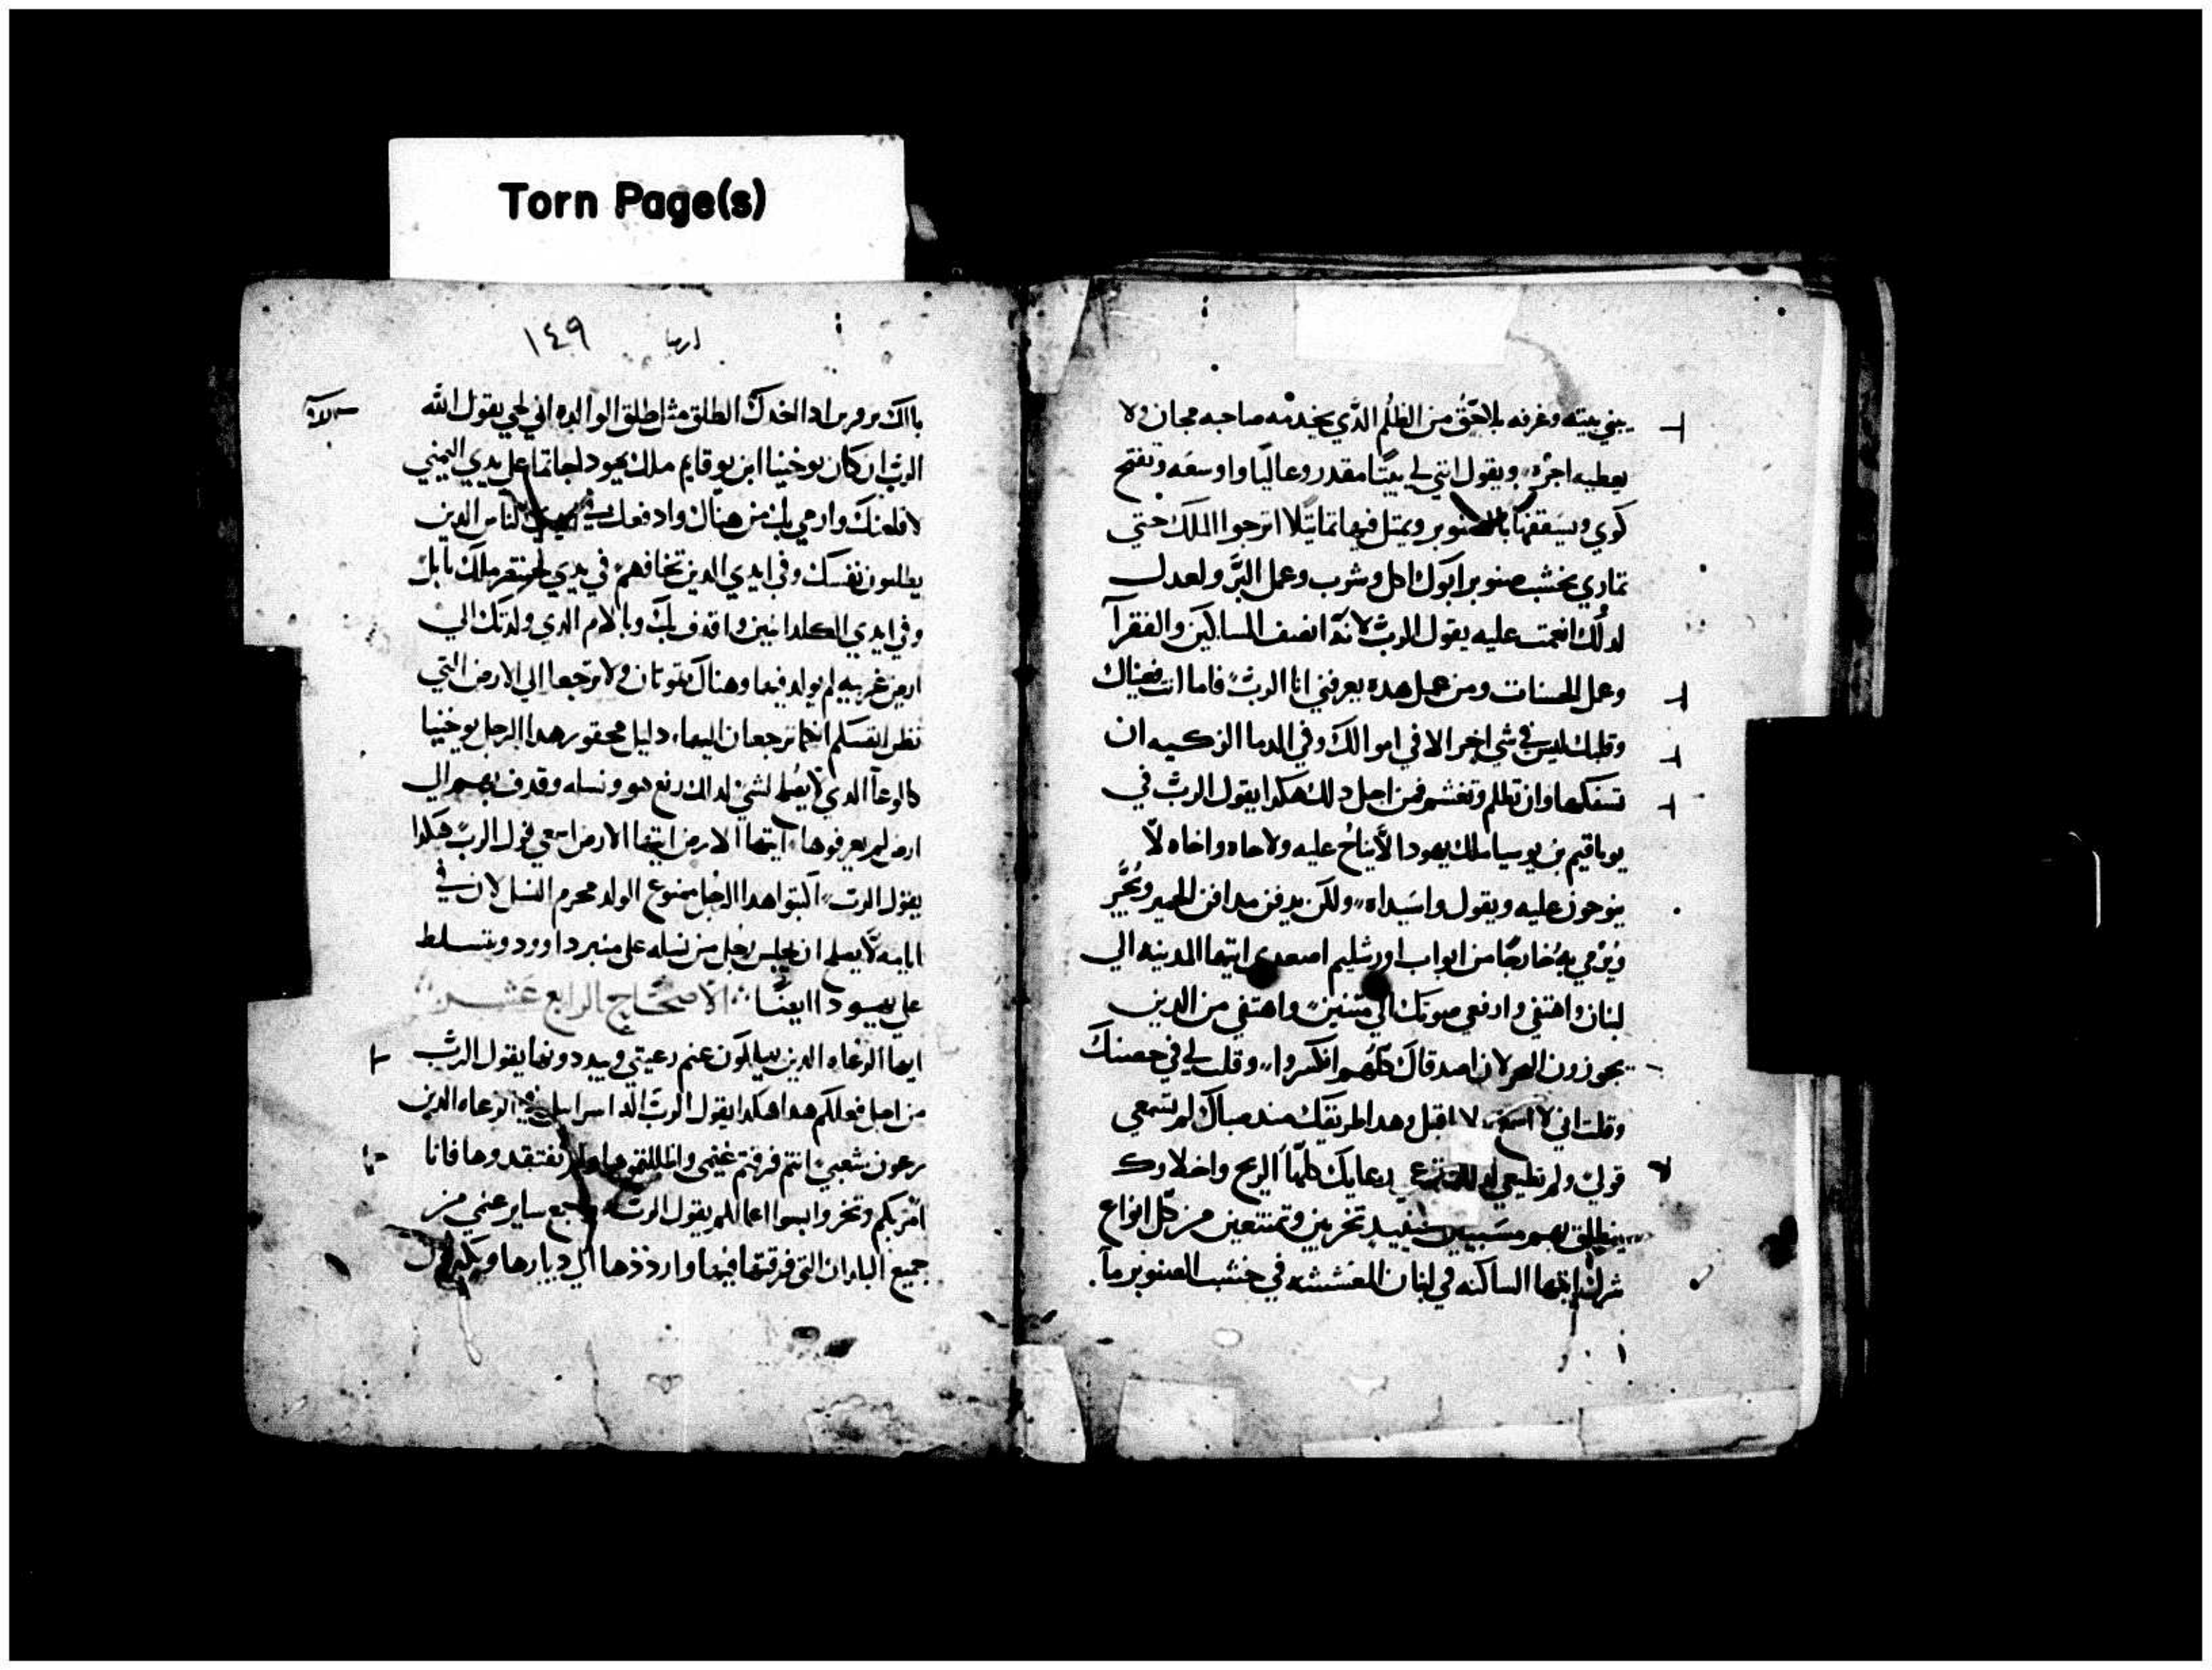 Torn Page(s)
يبني بيته وغرفه بلا حق من الظلم الدي يخدمه صاحبه مجان ولا
يعطيه اجره ويقول ابتني لي بيتا مقدر وعاليا واوسعه وتفتح
كوي ويسقفها بالصنوبر ويمثل فيها تماتيلا اترجوا الملك حتي
تماري بخشب صنوبر ابوك اكل وشرب وعمل البر والعدل
لدلك انعمت عليه يقول الرب لانه انصف المساكين والفقرا
وعمل الحسنات ومن عمل هده يعرفني انا الرب فاما انت فعيناك
وقلبك ليس في شي اخر الا في اموالك وفي الدما الزكيه ان
تسفكها وان تظلم وتغشم فمن اجل دلك هكدا يقول الرب في
يوياقيم بن يوسيا ملك يهودا لا يناح عليه ولا اخاه واخاه لا
ينوحون عليه ويقول واسيداه ولكن يدفن مدافن الحمير ويجر
ويرمي به خارجا من ابواب اورشليم اصعدي ايتها المدينه الي
لبنان واهتفي وارفعي صوتك الي متنين واهتفي من الدين
يجوزون البحر لان اصدقاك كلهم افكسروا وقلت لي في حصنك
وقلت اني لا اسمع ولا اقبل وهدا طريقك مند صباك لم تسمعي
قولي ولم تطيعي رعايك كلها الريح واخلاوك
ينطلق بهم مسبيين تخزين وتمتنعين من كل انواع
شرك ايتها الساكنه في لبنان المعششه في خشب الصنوبر ما
ارميا ١٤٩
اخدك الطلق مثل طلق الوالده اني لحي يقول الله
الرب ان كان يوخنيا ابن يوقايم ملك يهودا خاتما علي يدي اليمني
لاقلعنك وارمي بك من هناك وادفعك في الناس الدين
يطلبون نفسك وفي ايدي الدين تخافهم في يدي بختنصر ملك بابل
وفي ايدي الكلدانيين واقدف بك وبالام الدي ولدتك الي
ارض غريبه لم يولد فيها وهناك تموتان ولا ترجعا الي الارض التي
تظن انفسكم انكما ترجعان اليها دليل محقور هدا الرجل يوخنيا
كالوعا الدي لا يصلح لشي لدلك رفع هو ونسله وقدف بهم الي
ارض لم يعرفوها ايتها الارض ايتها الارض اسمعي قول الرب هكدا
يقول الرب اكتبوا هدا الرجل ممنوع الولد محرم النسل لان في
ايامه لا يصلح ان يجلس رجل من نسله علي منبر داوود ويتسلط
علي يهودا ايضا الاصحاح الرابع عشر
ايها الرعاه الدين يهلكون غنم رعيتي ويبددونها يقول الرب
من اجل فعلكم هدا هكدا يقول الرب اله اسراييل الرعاه الدين
يرعون شعبي انتم فرقتم غنمي واظللتموها ولم تفتقدوها فانا
يقول الرب واجمع ساير غنمي من
جميع البلدان التي فرقتها فيها واردذها الي ديارها